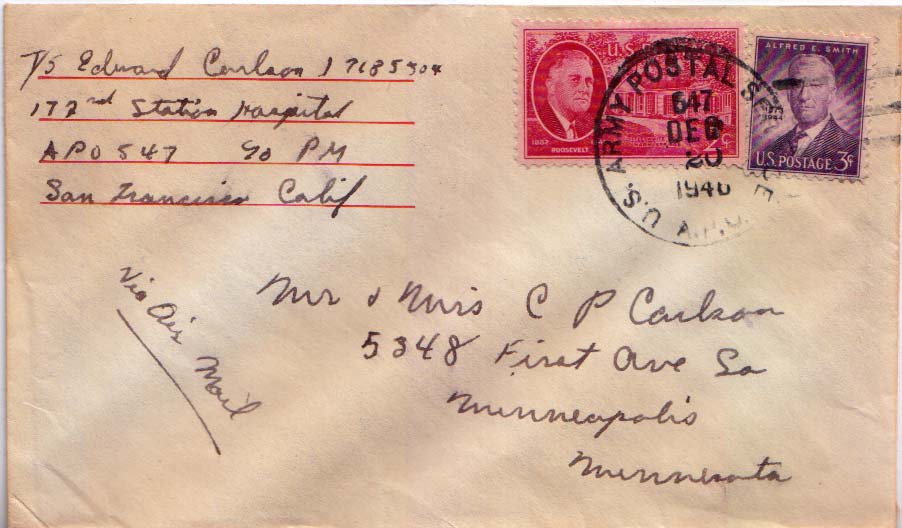 T/5 Edward Carlson 17685504
172nd Station Hospital
APO 547 % PM
San Francisco Calif
U.S.
1882
ROOSEVELT
2¢
ALFRED E. SMITH
1944
U.S. POSTAGE 3¢
U.S. ARMY POSTAL SE E
A.P.O.
547
DEC
20
1946
Via Air Mail
Mr & Mrs C P Carlson
5348 First Ave So
Minneapolis
Minnesota